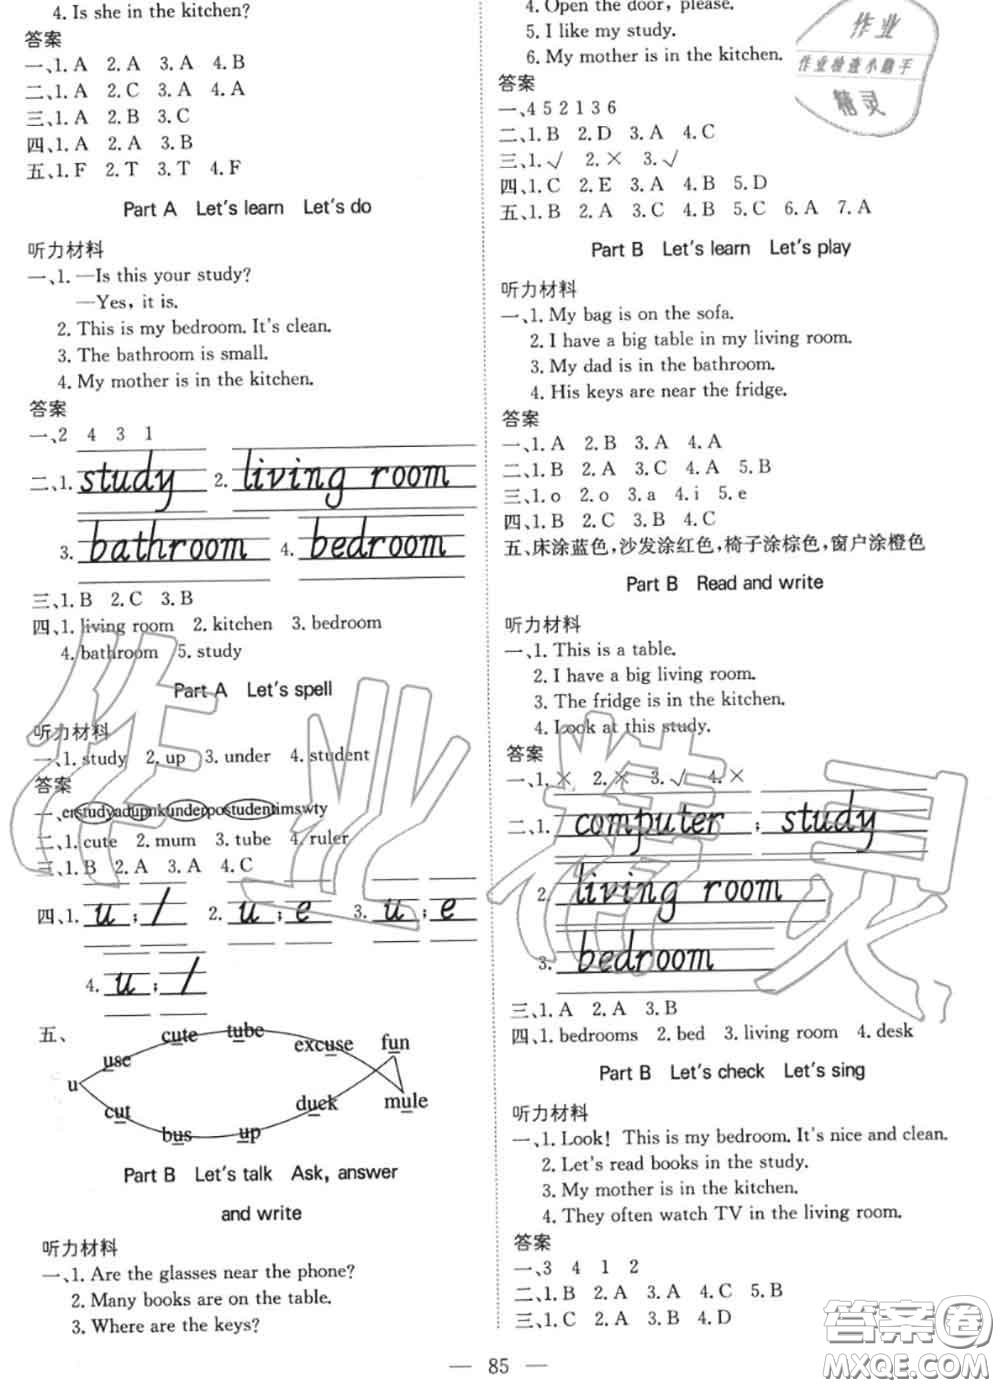 4. Is she in the kitchen?
答案
一、1. A 2. A 3. A 4. B
二、1. A 2. C 3. A 4. A
三、1. A 2. B 3. C
四、1. A 2. A 3. B
五、1. F 2. T 3. T 4. F
Part A Let's learn Let's do
听力材料
一、1. —Is this your study?
—Yes, it is.
2. This is my bedroom. It's clean.
3. The bathroom is small.
4. My mother is in the kitchen.
答案
一、2 4 3 1
二、1. study 2. living room
3. bathroom 4. bedroom
三、1. B 2. C 3. B
四、1. living room 2. kitchen 3. bedroom
4. bathroom 5. study
Part A Let's spell
听力材料
一、1. study 2. up 3. under 4. student
答案
一、erstudyadupnkunderpostudentimswty
二、1. cute 2. mum 3. tube 4. ruler
三、1. B 2. A 3. A 4. C
四、1. u ; / 2. u ; e 3. u ; e
4. u ; /
五、
u use cute tube excuse fun
cut bus up duck mule
Part B Let's talk Ask, answer
and write
听力材料
一、1. Are the glasses near the phone?
2. Many books are on the table.
3. Where are the keys?
4. Open the door, please.
5. I like my study.
6. My mother is in the kitchen.
答案
一、4 5 2 1 3 6
二、1. B 2. D 3. A 4. C
三、1. √ 2. × 3. √
四、1. C 2. E 3. A 4. B 5. D
五、1. B 2. A 3. C 4. B 5. C 6. A 7. A
Part B Let's learn Let's play
听力材料
一、1. My bag is on the sofa.
2. I have a big table in my living room.
3. My dad is in the bathroom.
4. His keys are near the fridge.
答案
一、1. A 2. B 3. A 4. A
二、1. B 2. A 3. C 4. A 5. B
三、1. o 2. o 3. a 4. i 5. e
四、1. B 2. C 3. B 4. C
五、床涂蓝色,沙发涂红色,椅子涂棕色,窗户涂橙色
Part B Read and write
听力材料
一、1. This is a table.
2. I have a big living room.
3. The fridge is in the kitchen.
4. Look at this study.
答案
一、1. × 2. × 3. √ 4. ×
二、1. computer ; study
2. living room
3. bedroom
三、1. A 2. A 3. B
四、1. bedrooms 2. bed 3. living room 4. desk
Part B Let's check Let's sing
听力材料
一、1. Look! This is my bedroom. It's nice and clean.
2. Let's read books in the study.
3. My mother is in the kitchen.
4. They often watch TV in the living room.
答案
一、3 4 1 2
二、1. B 2. A 3. A 4. C 5. B
三、1. C 2. A 3. B 4. D
— 85 —
作业
作业检查小助手
精灵
作业精灵
答案圈
MXQE.COM